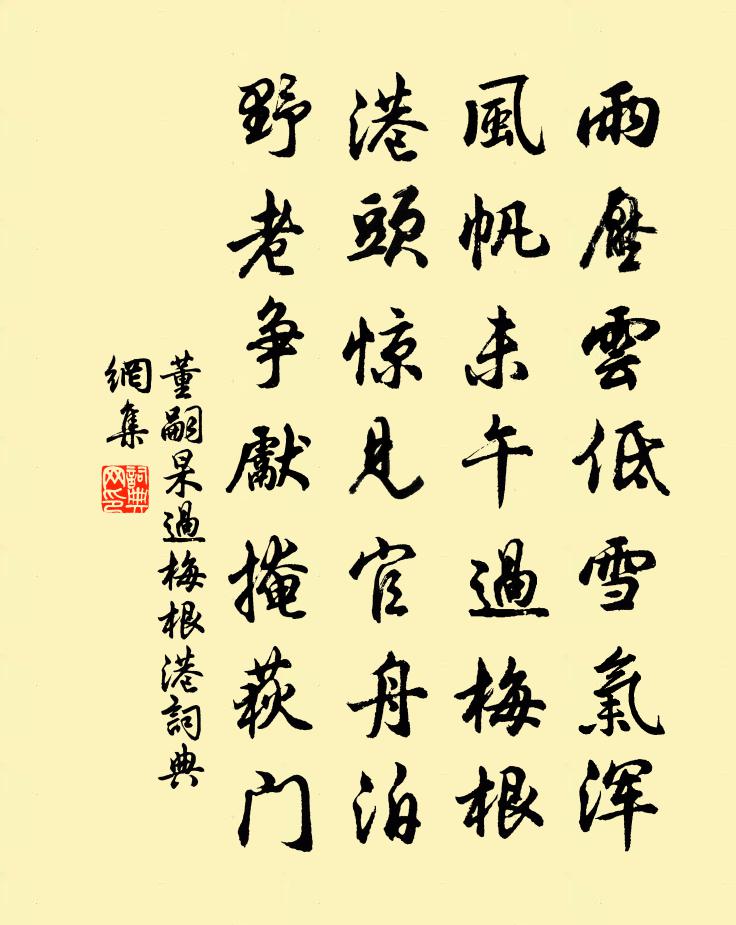 雨壓雲低雪氣浑
風帆未午過梅根
港頭惊見官舟泊
野老争獻掩荻门
董嗣杲過梅根港詞典
網集
詞典
网印